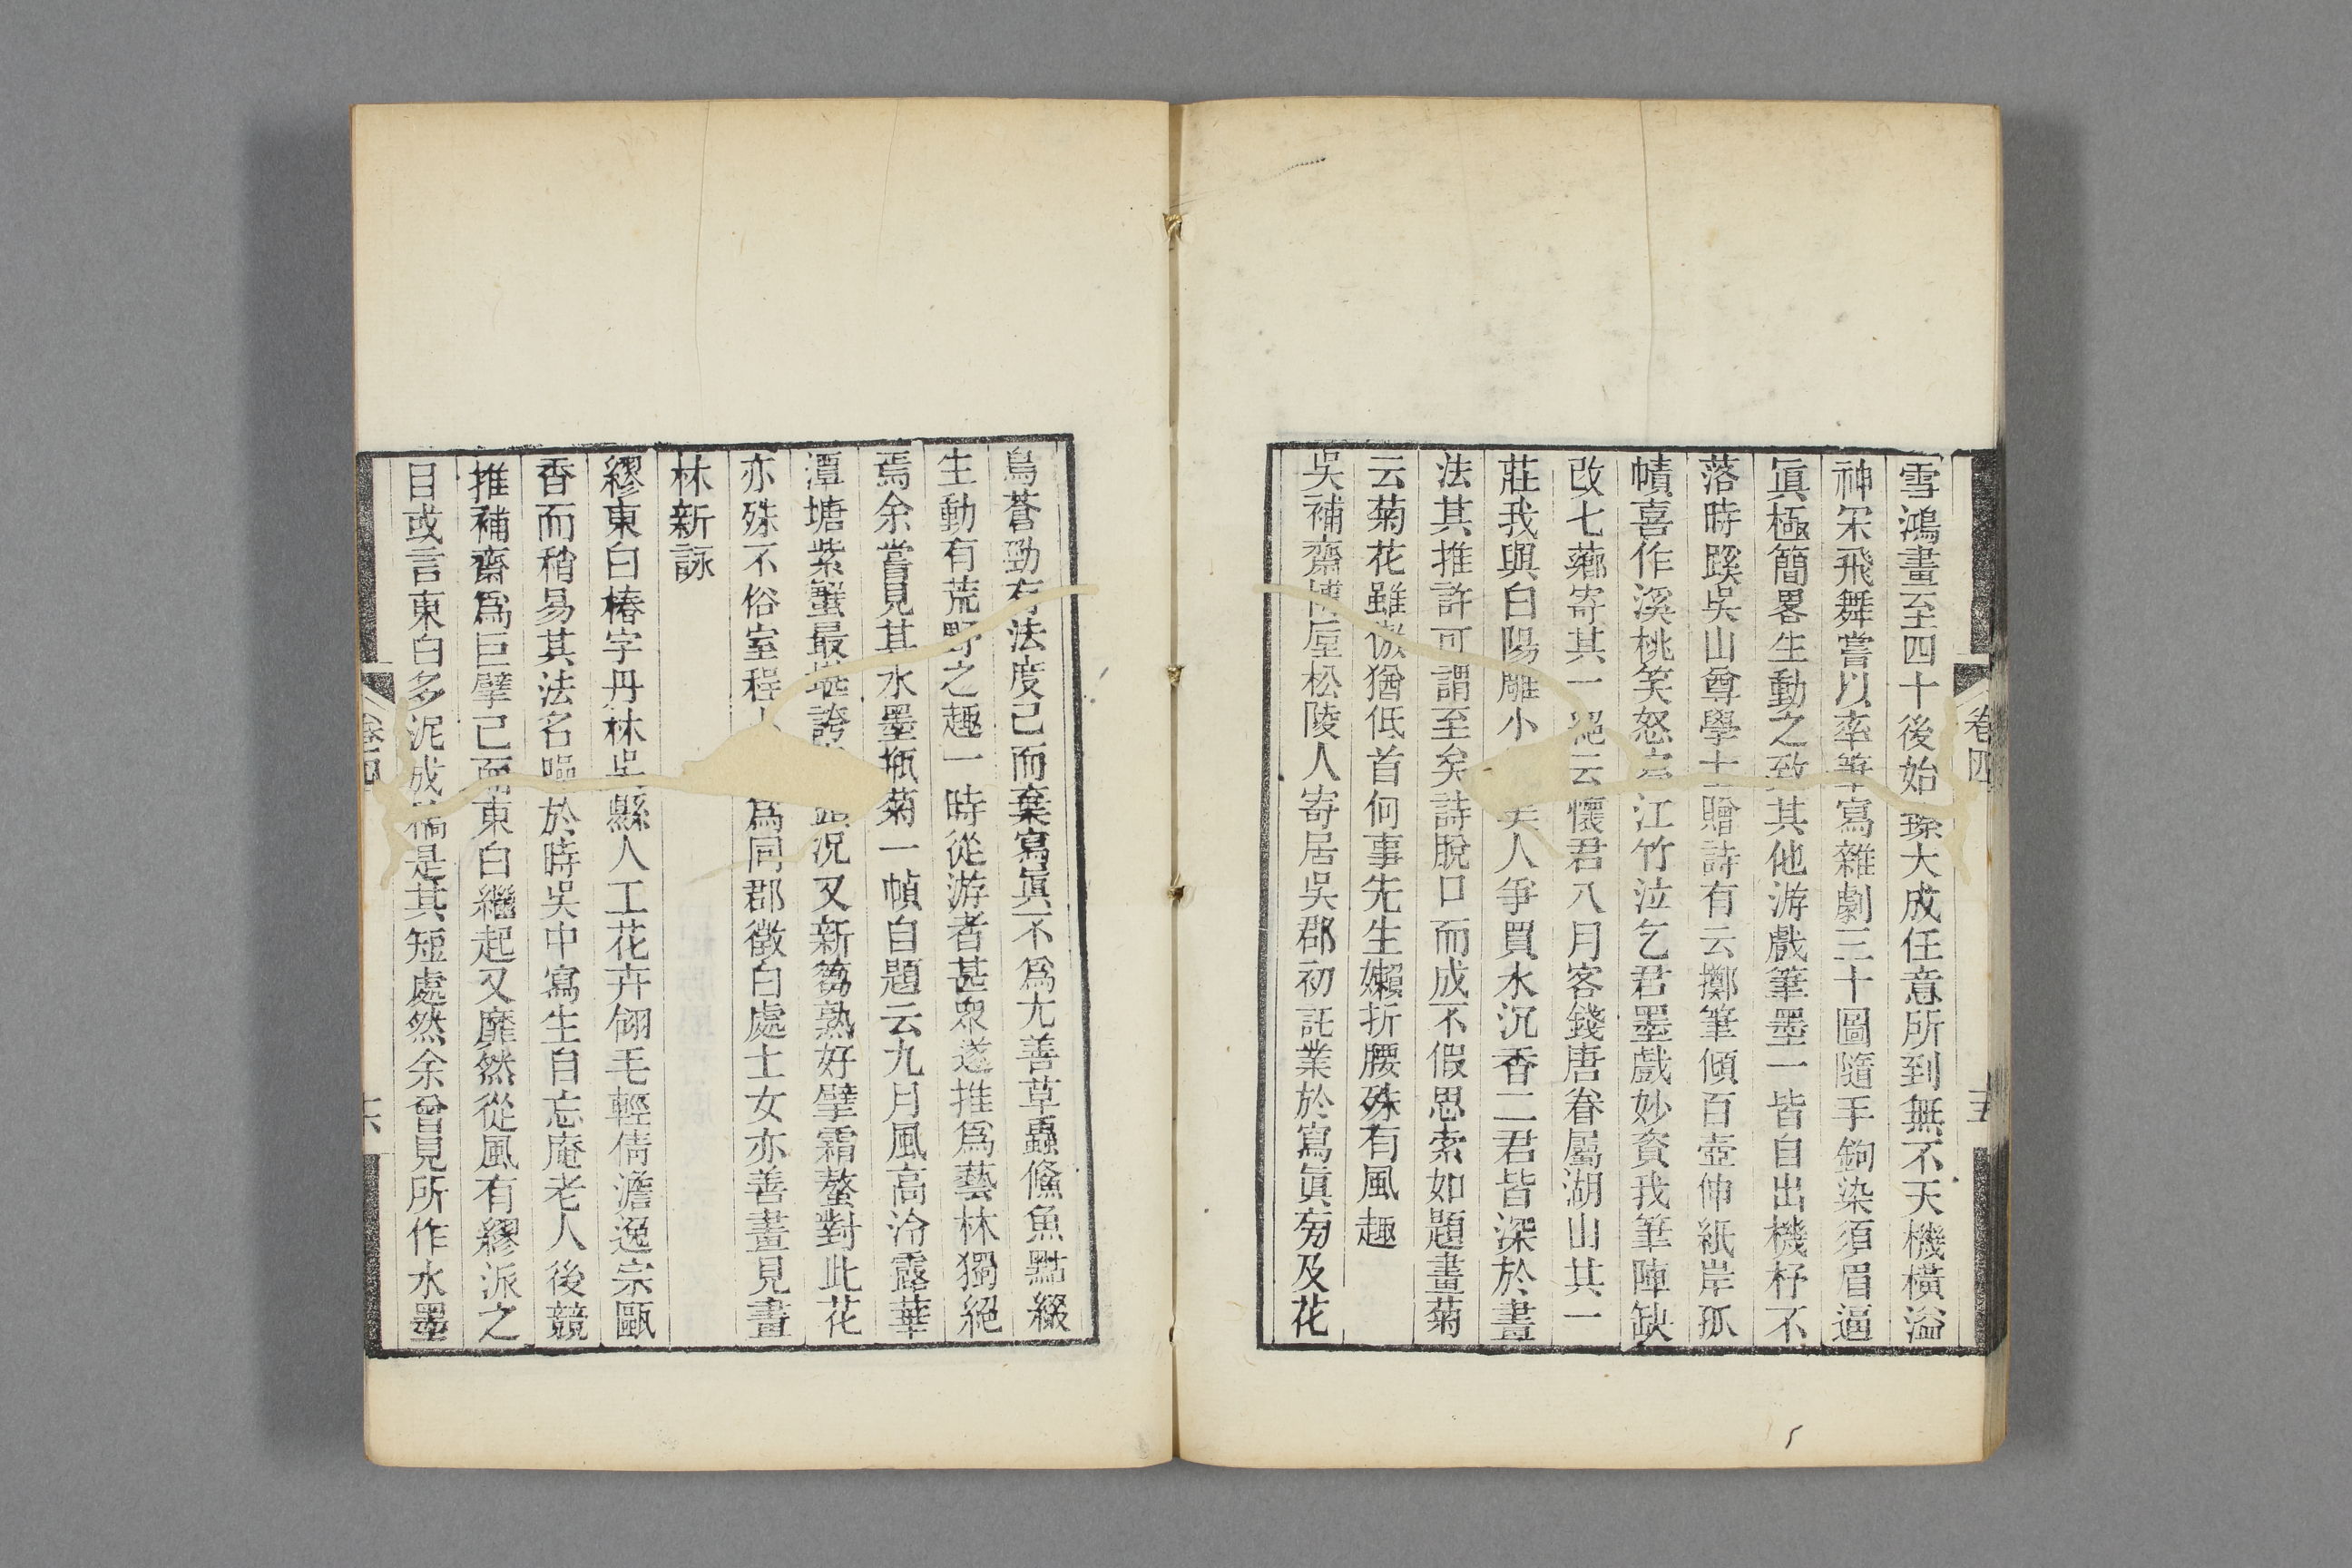 卷四
雪鴻畫至四十後始臻大成任意所到無不天機橫溢
神采飛舞嘗以率筆寫雜劇三十圖隨手鉤染須眉逼
眞極簡畧生動之致其他游戲筆墨一皆自出機杼不
落時蹊吳山尊學士贈詩有云擲筆傾百壺伸紙岸孤
幘喜作溪桃笑怒寫江竹泣乞君墨戲妙資我筆陣缺
改七薌寄其一絕云懷君八月客錢唐眷屬湖山其一
莊我與白陽雕小 美人爭買水沉香二君皆深於畫
法其推許可謂至矣詩脫口而成不假思索如題畫菊
云菊花雖傲猶低首何事先生嬾折腰殊有風趣
吳補齋博垕松陵人寄居吳郡初託業於寫眞旁及花
鳥蒼勁有法度已而棄寫眞不爲尤善草蟲鯈魚點綴
生動有荒野之趣一時從游者甚衆遂推爲藝林獨絕
焉余嘗見其水墨瓶菊一幀自題云九月風高泠露華
潭塘紫蟹最堪誇 況又新蒭熟好擘霜螯對此花
亦殊不俗室程 爲同郡徵白處士女亦善畫見畫
林新詠
繆東白椿字丹林吳縣人工花卉翎毛輕倩澹逸宗甌
香而稍易其法名噪於時吳中寫生自忘庵老人後競
推補齋爲巨擘已而東白繼起又靡然從風有繆派之
目或言東白多泥成稿是其短處然余曾見所作水墨
卷四